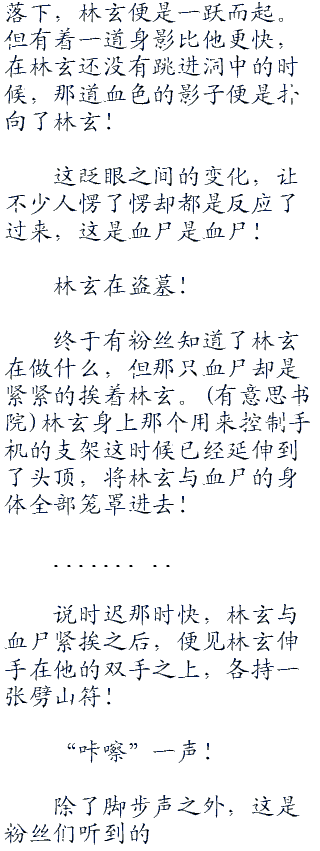 落下，林玄便是一跃而起。
但有着一道身影比他更快，
在林玄还没有跳进洞中的时
候，那道血色的影子便是扑
向了林玄！
这眨眼之间的变化，让
不少人愣了愣却都是反应了
过来，这是血尸是血尸！
林玄在盗墓！
终于有粉丝知道了林玄
在做什么，但那只血尸却是
紧紧的挨着林玄。(有意思书
院)林玄身上那个用来控制手
机的支架这时候已经延伸到
了头顶，将林玄与血尸的身
体全部笼罩进去！
....... ..
说时迟那时快，林玄与
血尸紧挨之后，便见林玄伸
手在他的双手之上，各持一
张劈山符！
“咔嚓”一声！
除了脚步声之外，这是
粉丝们听到的